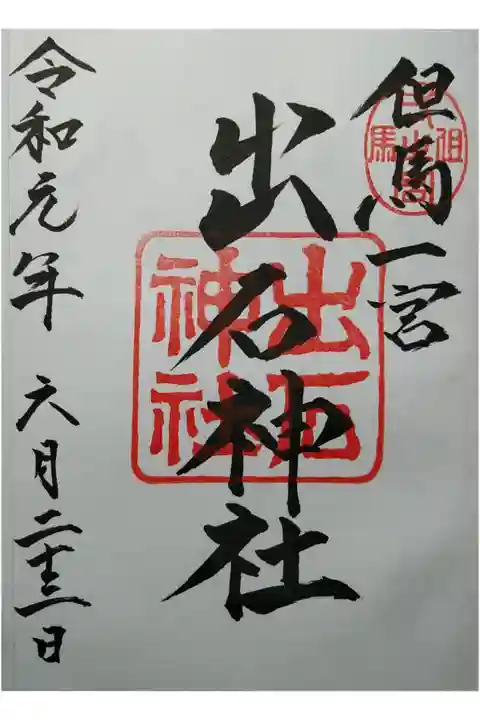 但馬一宮
出石神社
令和元年六月二十三日
出石
神社